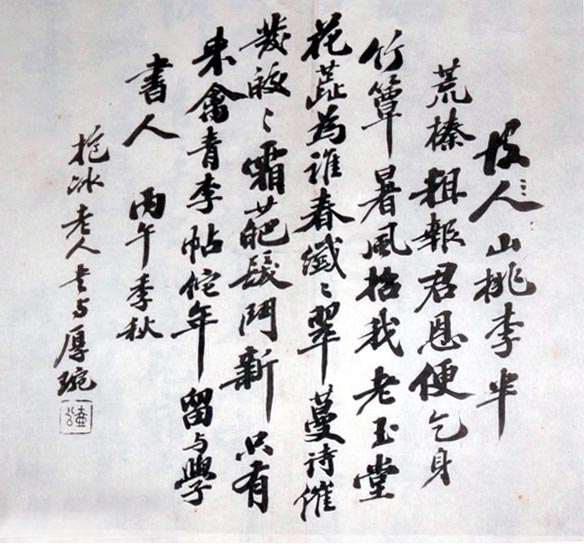 故人山桃李半
荒榛粗報君恩便乞身
竹簟暑風招我老玉堂
花蕊為誰春纖〻翠蔓詩催
發皎〻霜葩髮鬥新只有
来禽青李帖佗年留与學
書人 丙午季秋
抱冰老人书与厚琬